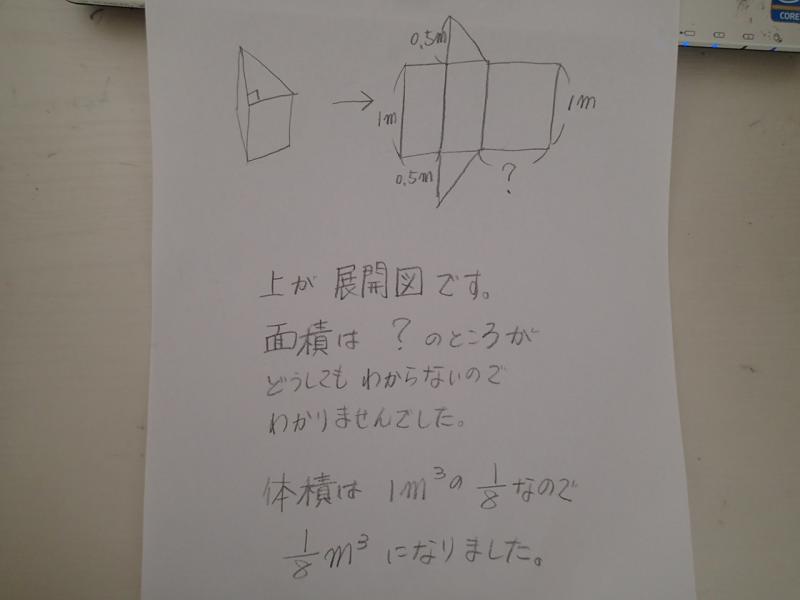 0.5m
1m
1m
0.5m
?
上が 展開図です。
面積は ? のところが
どうしても わからないので
わかりませんでした。
体積は 1m³の 1/8 なので
1/8 m³ になりました。
CORE